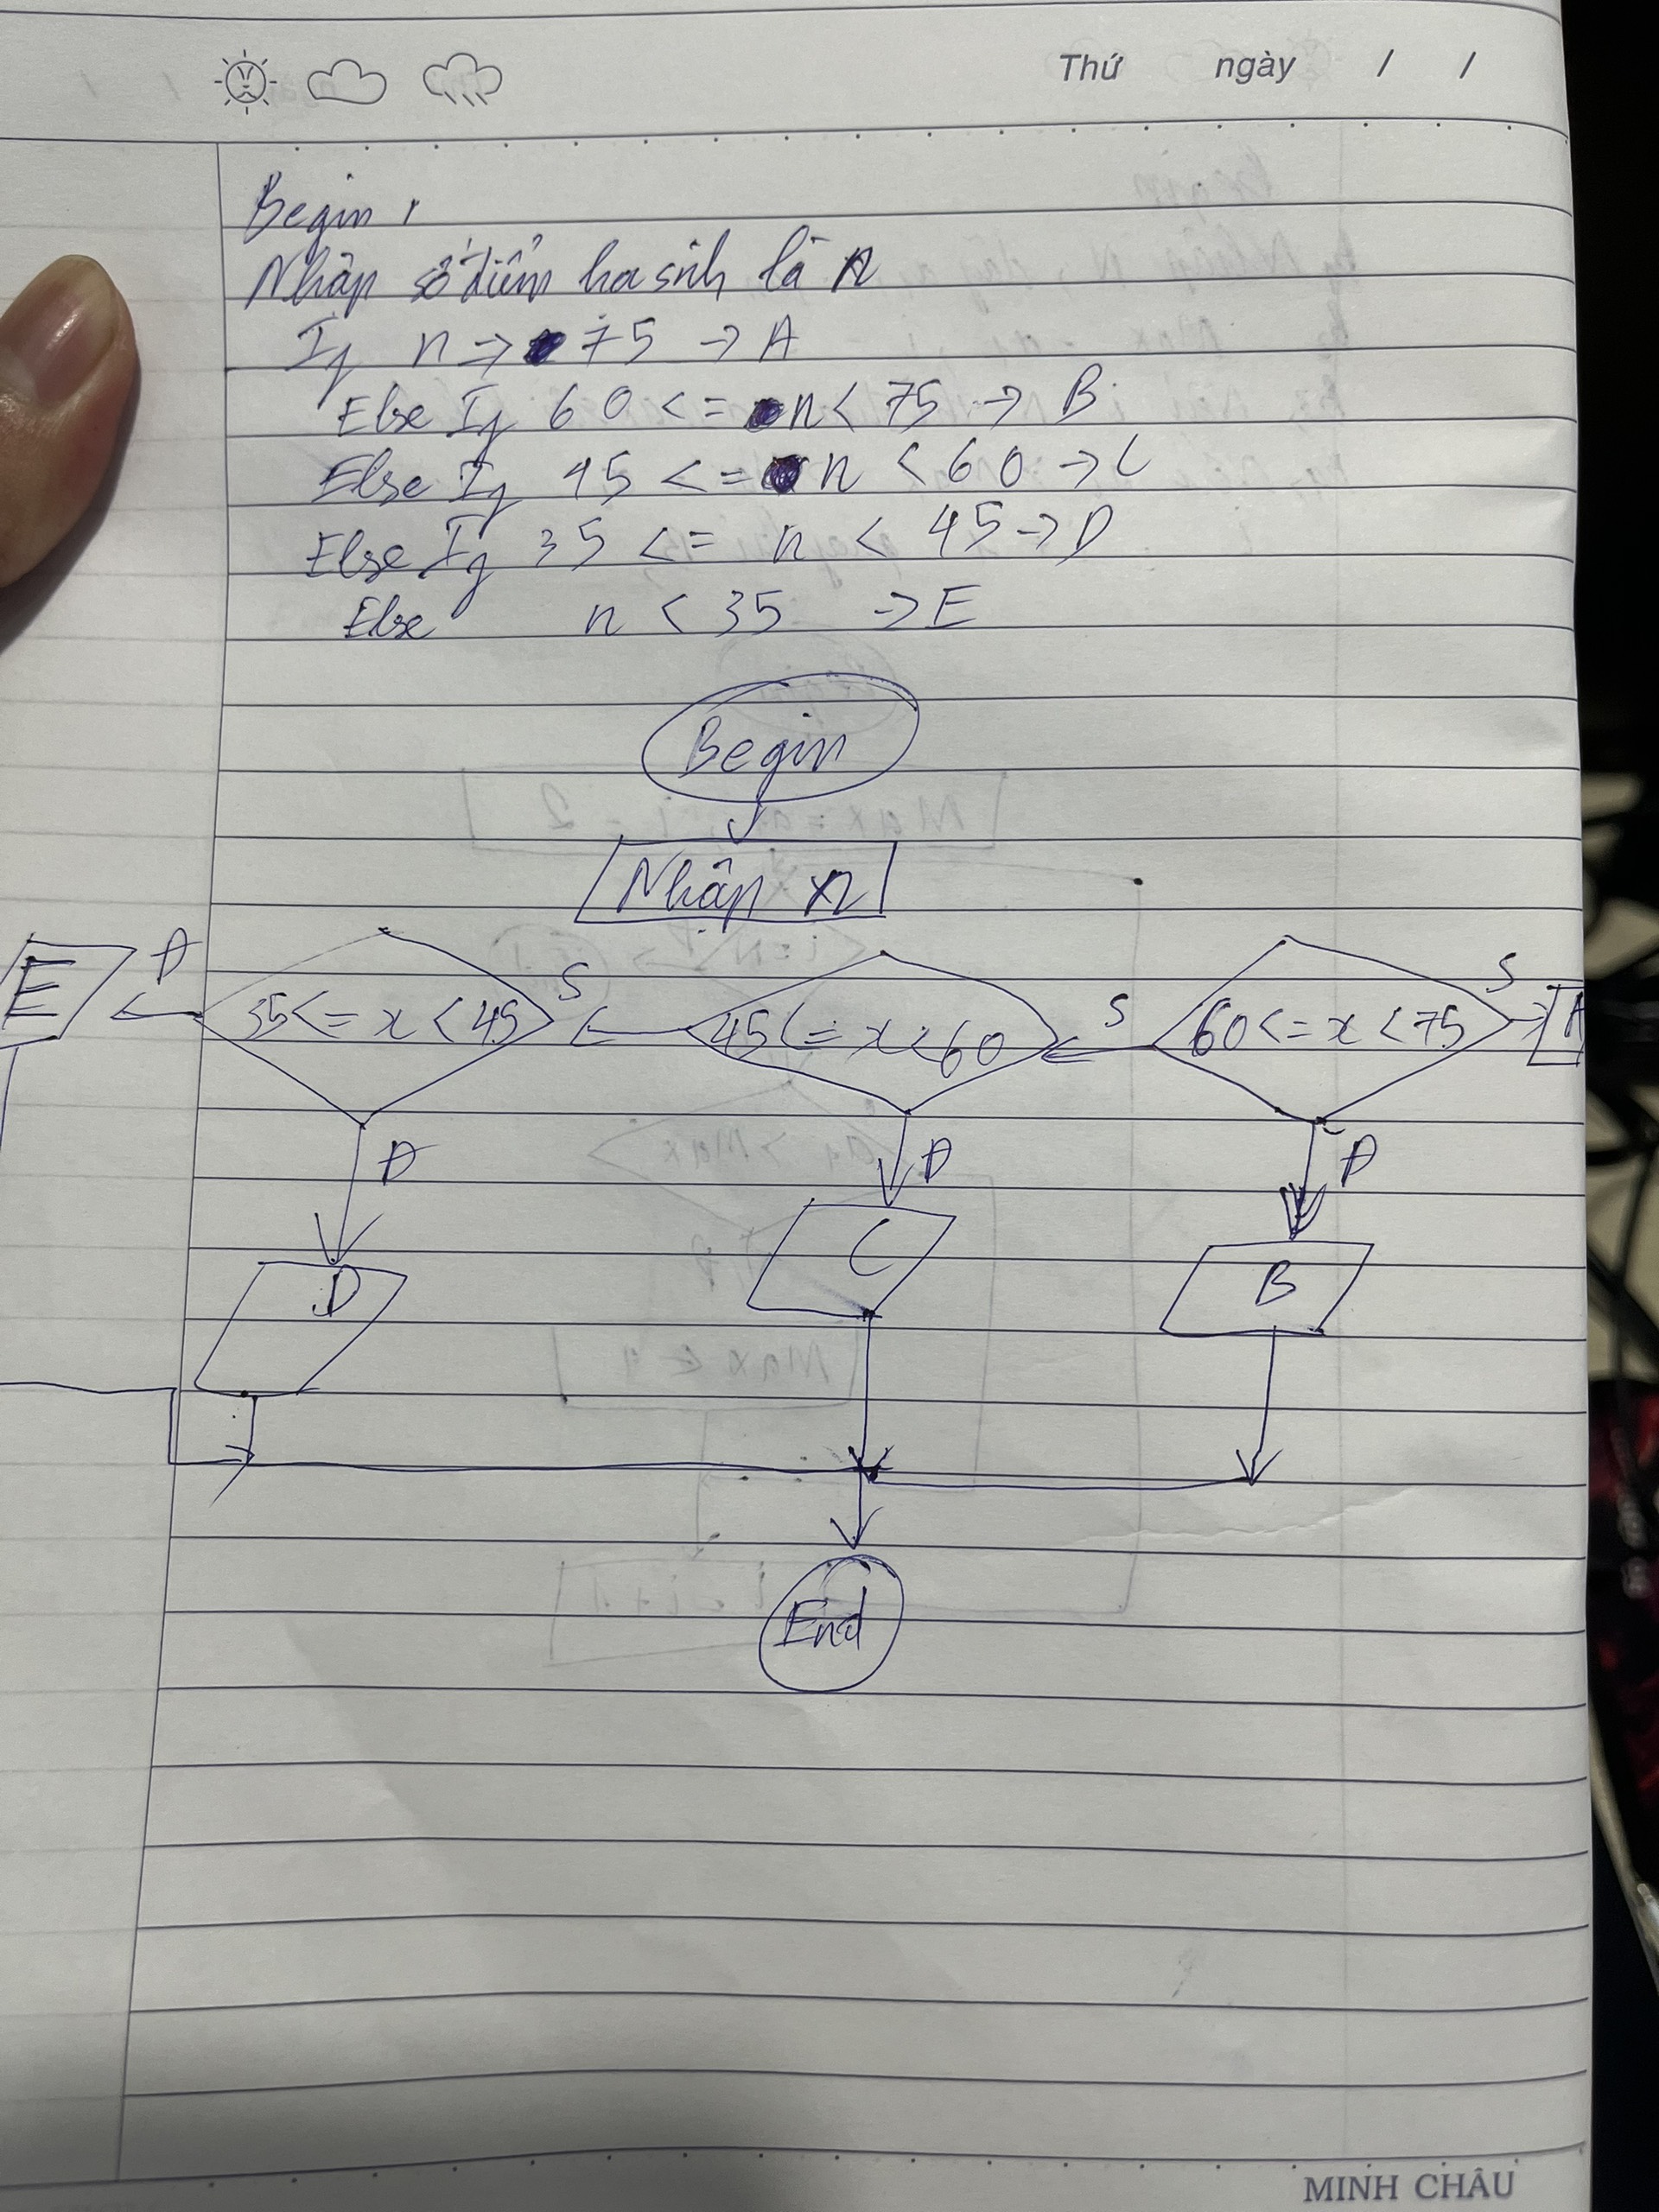 Thứ ngày / /
Begin
Nhập số điểm học sinh là n
If n => 75 → A
Else If 60 <= n < 75 → B
Else If 45 <= n < 60 → C
Else If 35 <= n < 45 → D
Else n < 35 → E
Begin
Nhập n
E Đ 35 <= x < 45 S 45 <= x < 60 S 60 <= x < 75 S A
Đ Đ Đ
D C B
End
MINH CHÂU